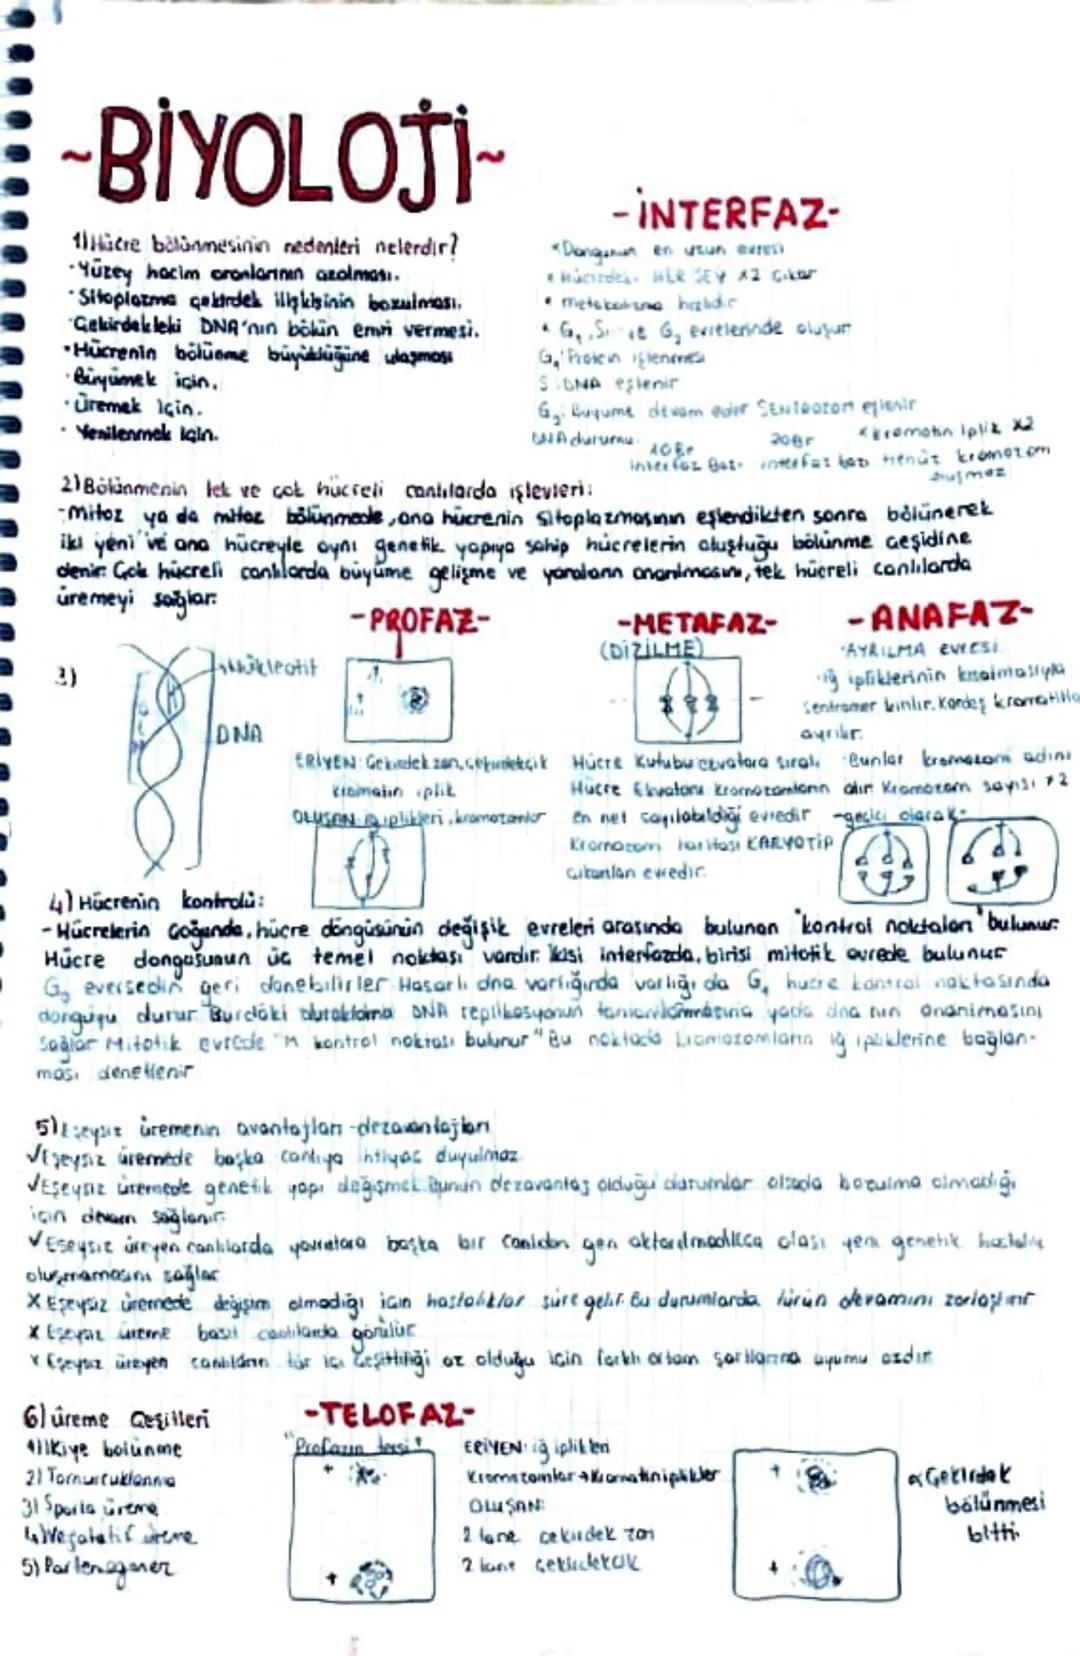 ~BİYOLOJİ~
1) Hücre bölünmesinin nedenleri nelerdir?
· Yüzey hacim oranlarının azalması.
· Sitoplazma çekirdek ilişkisinin bozulması.
Çekirdekteki DNA'nın bölün emri vermesi.
· Hücrenin bölünme büyüklüğüne ulaşması
· Büyümek için.
· Üremek için.
· Yenilenmek için.
-İNTERFAZ-
* Döngünün en uzun evresi
* HER ŞEY x2 Çıkar
* metabolizma hızlıdır
* G₁, S ve G₂ evrelerinde oluşur
G₁: Protein işlenmesi
S: DNA eşlenir
G₂: Büyüme devam eder SENTROZOM eşlenir
DNA durumu
10Br 20Br kromatin iplik x2
interfaz Baş. interfaz baş Henüz kromozom
oluşmaz
2) Bölünmenin tek ve çok hücreli canlılarda işlevleri:
-Mitoz ya da mitoz bölünmede, ana hücrenin Sitoplazmasının eşlendikten sonra bölünerek
iki yeni ve ana hücreyle aynı genetik yapıya sahip hücrelerin oluştuğu bölünme çeşidine
denir. Çok hücreli canlılarda büyüme gelişme ve yaraların onarılmasını, tek hücreli canlılarda
üremeyi sağlar.
3)
Nükleotit
DNA
-PROFAZ-
ERİYEN: Çekirdek zarı, çekirdekçik
kromatin iplik
OLUŞAN: iğ iplikleri, kromozomlar
-METAFAZ-
(DİZİLME)
Hücre Kutubu
Hücre Ekvatoru Kromozomların
en net sayılabildiği evredir
Kromozom haritası KARYOTİP
çıkarılan evredir.
-ANAFAZ-
·AYRILMA evresi
·iğ ipliklerinin kısalmasıyla
Sentromer kırılır. Kardeş kromatitle
ayrılır.
·Bunlar kromozom adını
alır Kromozom sayısı x2
-geçici olarak-
4) Hücrenin kontrolü:
-Hücrelerin çoğunda, hücre döngüsünün değişik evreleri arasında bulunan "kontrol noktaları" bulunur.
Hücre döngüsünün üç temel noktası vardır. İkisi interfazda, birisi mitotik evrede bulunur
geri dönebilirler Hasarlı dna varlığında varlığı da G₁ hücre kontrol noktasında
döngüyü durur. Burdaki duraklama DNA replikasyonun yada dna nın onarılmasını
Sağlar Mitotik evrede "M kontrol noktası bulunur" Bu noktada kromozomların iğ ipliklerine bağlan-
ması denetlenir
5) Eşeysiz üremenin avantajları-dezavantajları
√Eşeysiz üremede başka canlıya ihtiyaç duyulmaz
√Eşeysiz üremede genetik yapı değişmek Bunun dezavantaj olduğu durumlar olsada bozulma olmadığı
için devam sağlanır.
√Eşeysiz üreyen canlılarda yavrulara başka bir canlıdan gen aktarılmadıkça olası yeni genetik hastalık
oluşmamasını sağlar
X Eşeysiz üremede değişim olmadığı için hastalıklar süre gelir. Bu durumlarda türün devamını zorlaştırır
X Eşeysiz üreme basit canlılarda görülür
X Eşeysiz üreyen canlıların tür içi çeşitliliği az olduğu için farklı ortam şartlarına uyumu azdır.
6) üreme Çeşitleri
1) İkiye bölünme
2) Tomurcuklanma
3) Sporla üreme
4) Vejatatif üreme
5) Partenogenez
-TELOFAZ-
"Profazın tersi"
ERİYEN: iğ iplikleri
Kromozomlar → Kromatin iplikler
OLUŞAN:
2 tane çekirdek zarı
2 tane çekirdekçik
Çekirdek
bölünmesi
bitti.